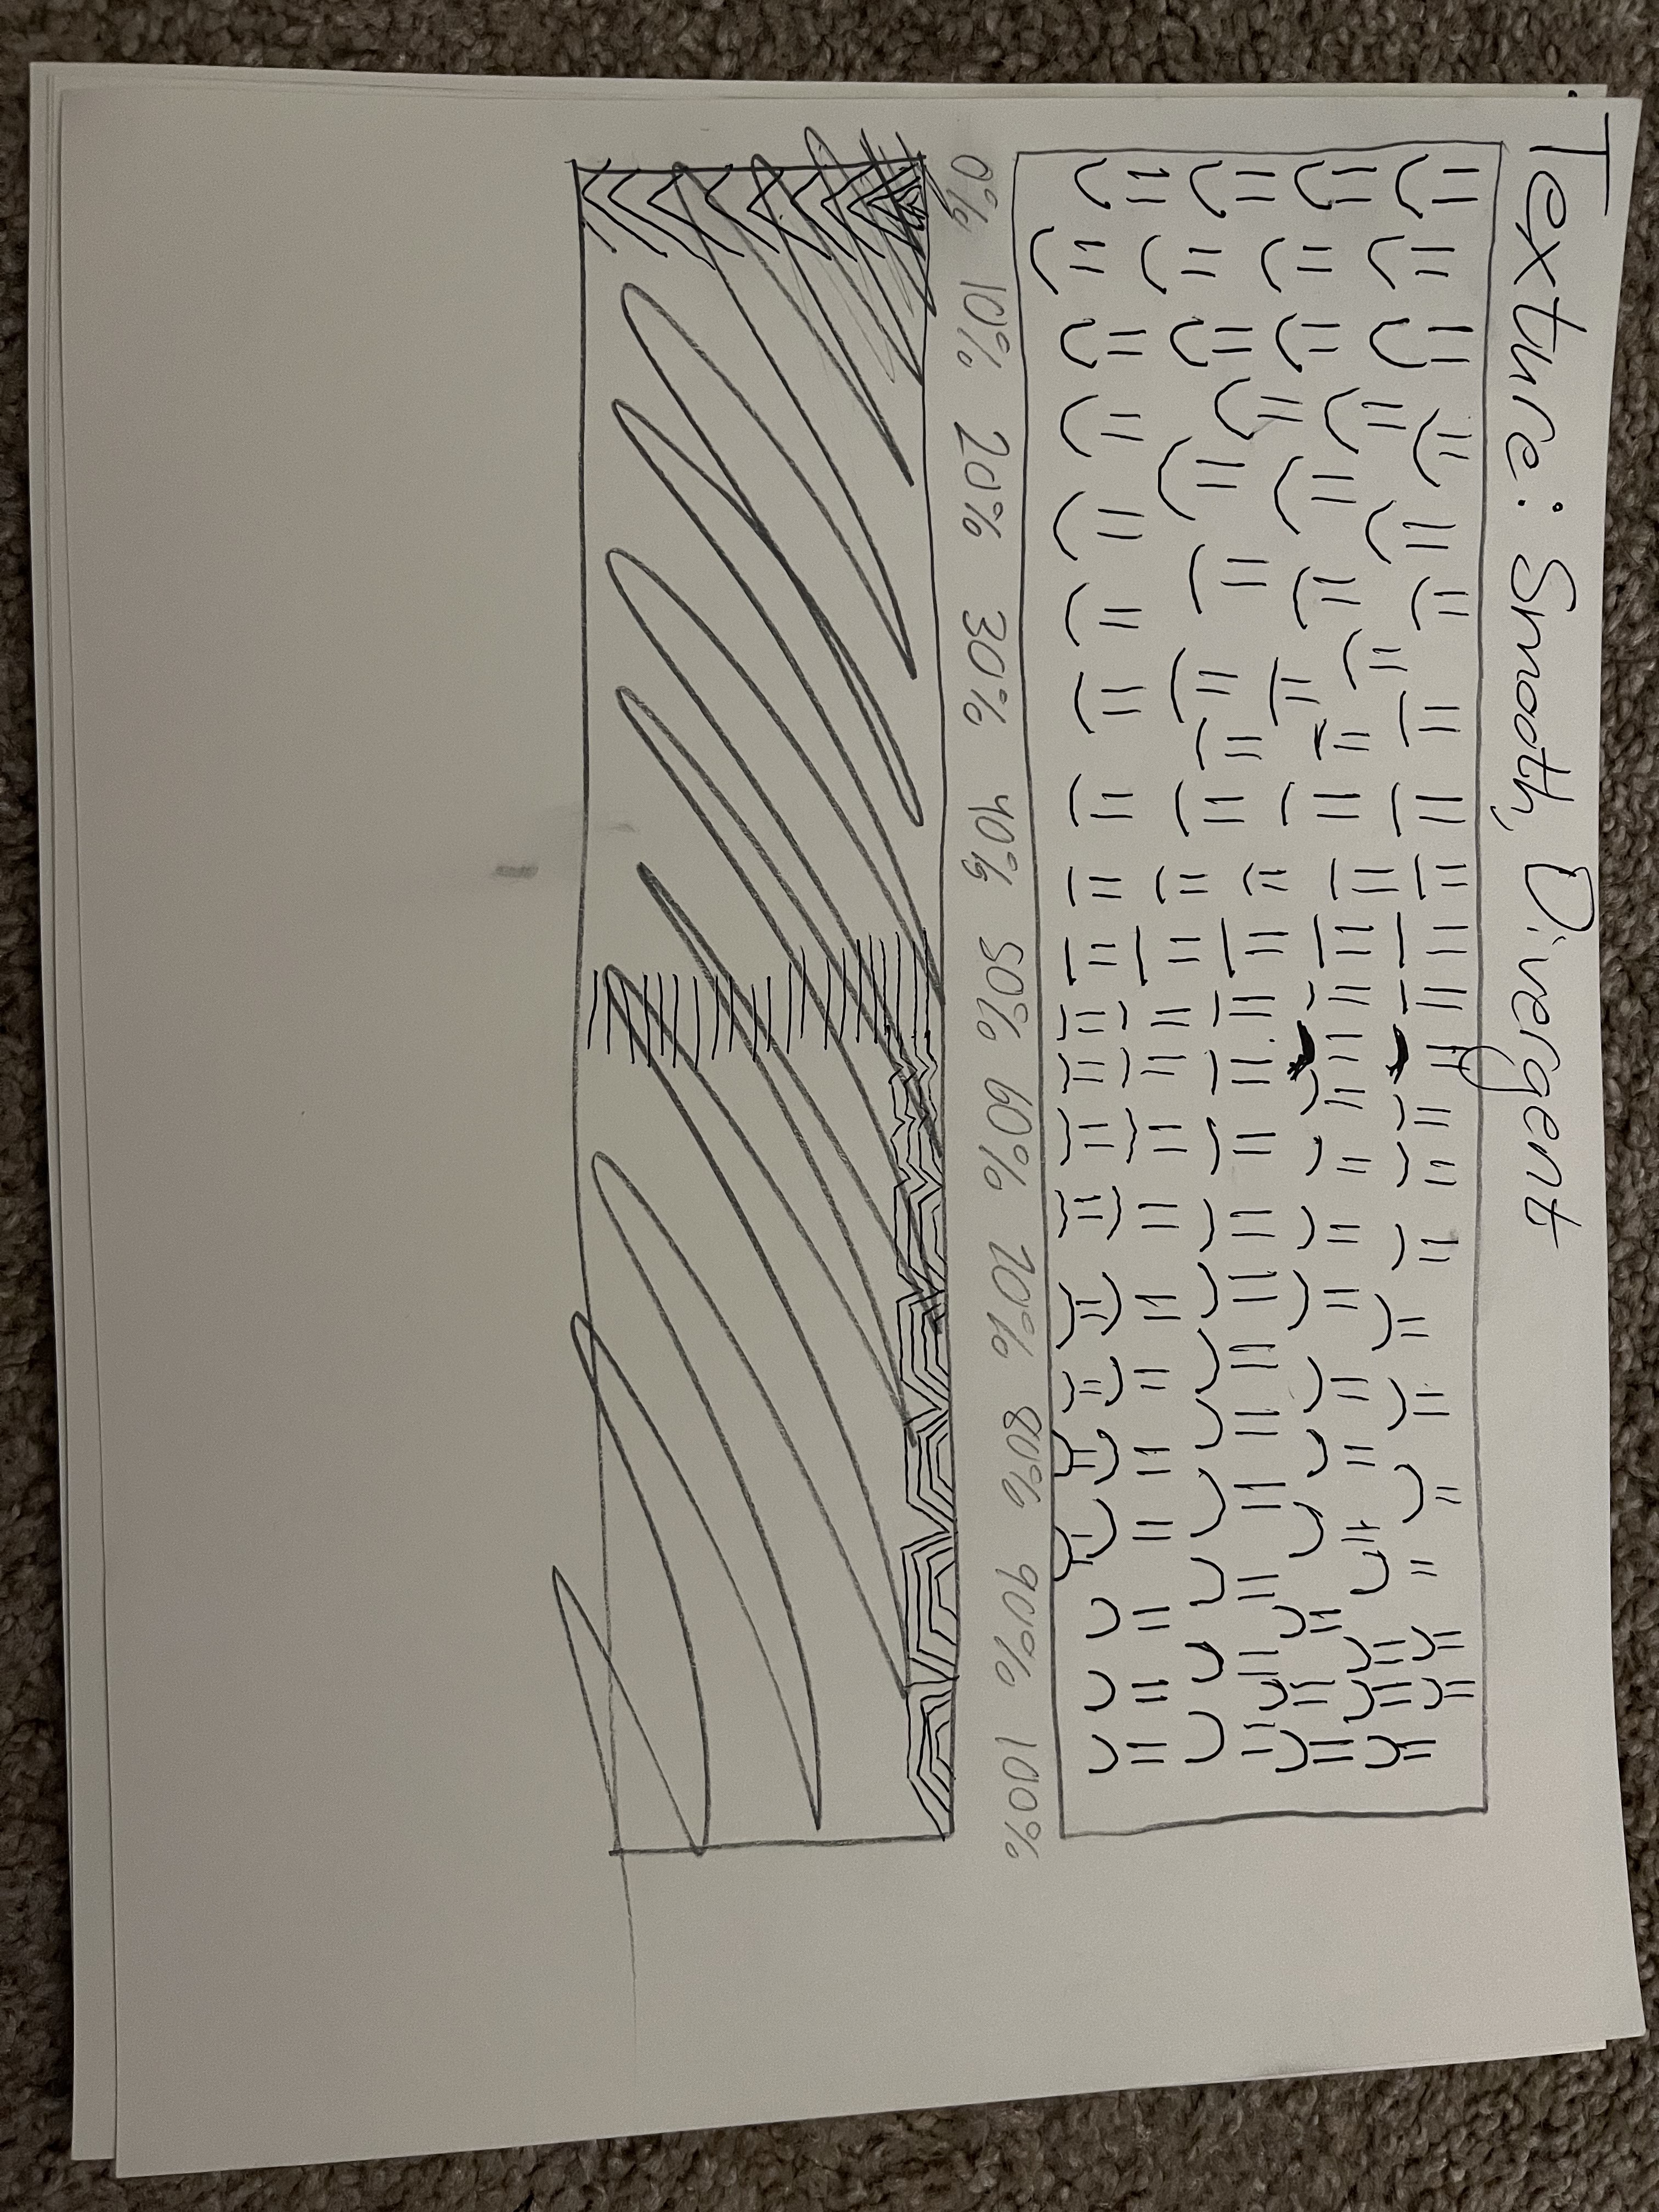 Texture: Smooth, Divergent
0% 10% 20% 30% 40% 50% 60% 70% 80% 90% 100%